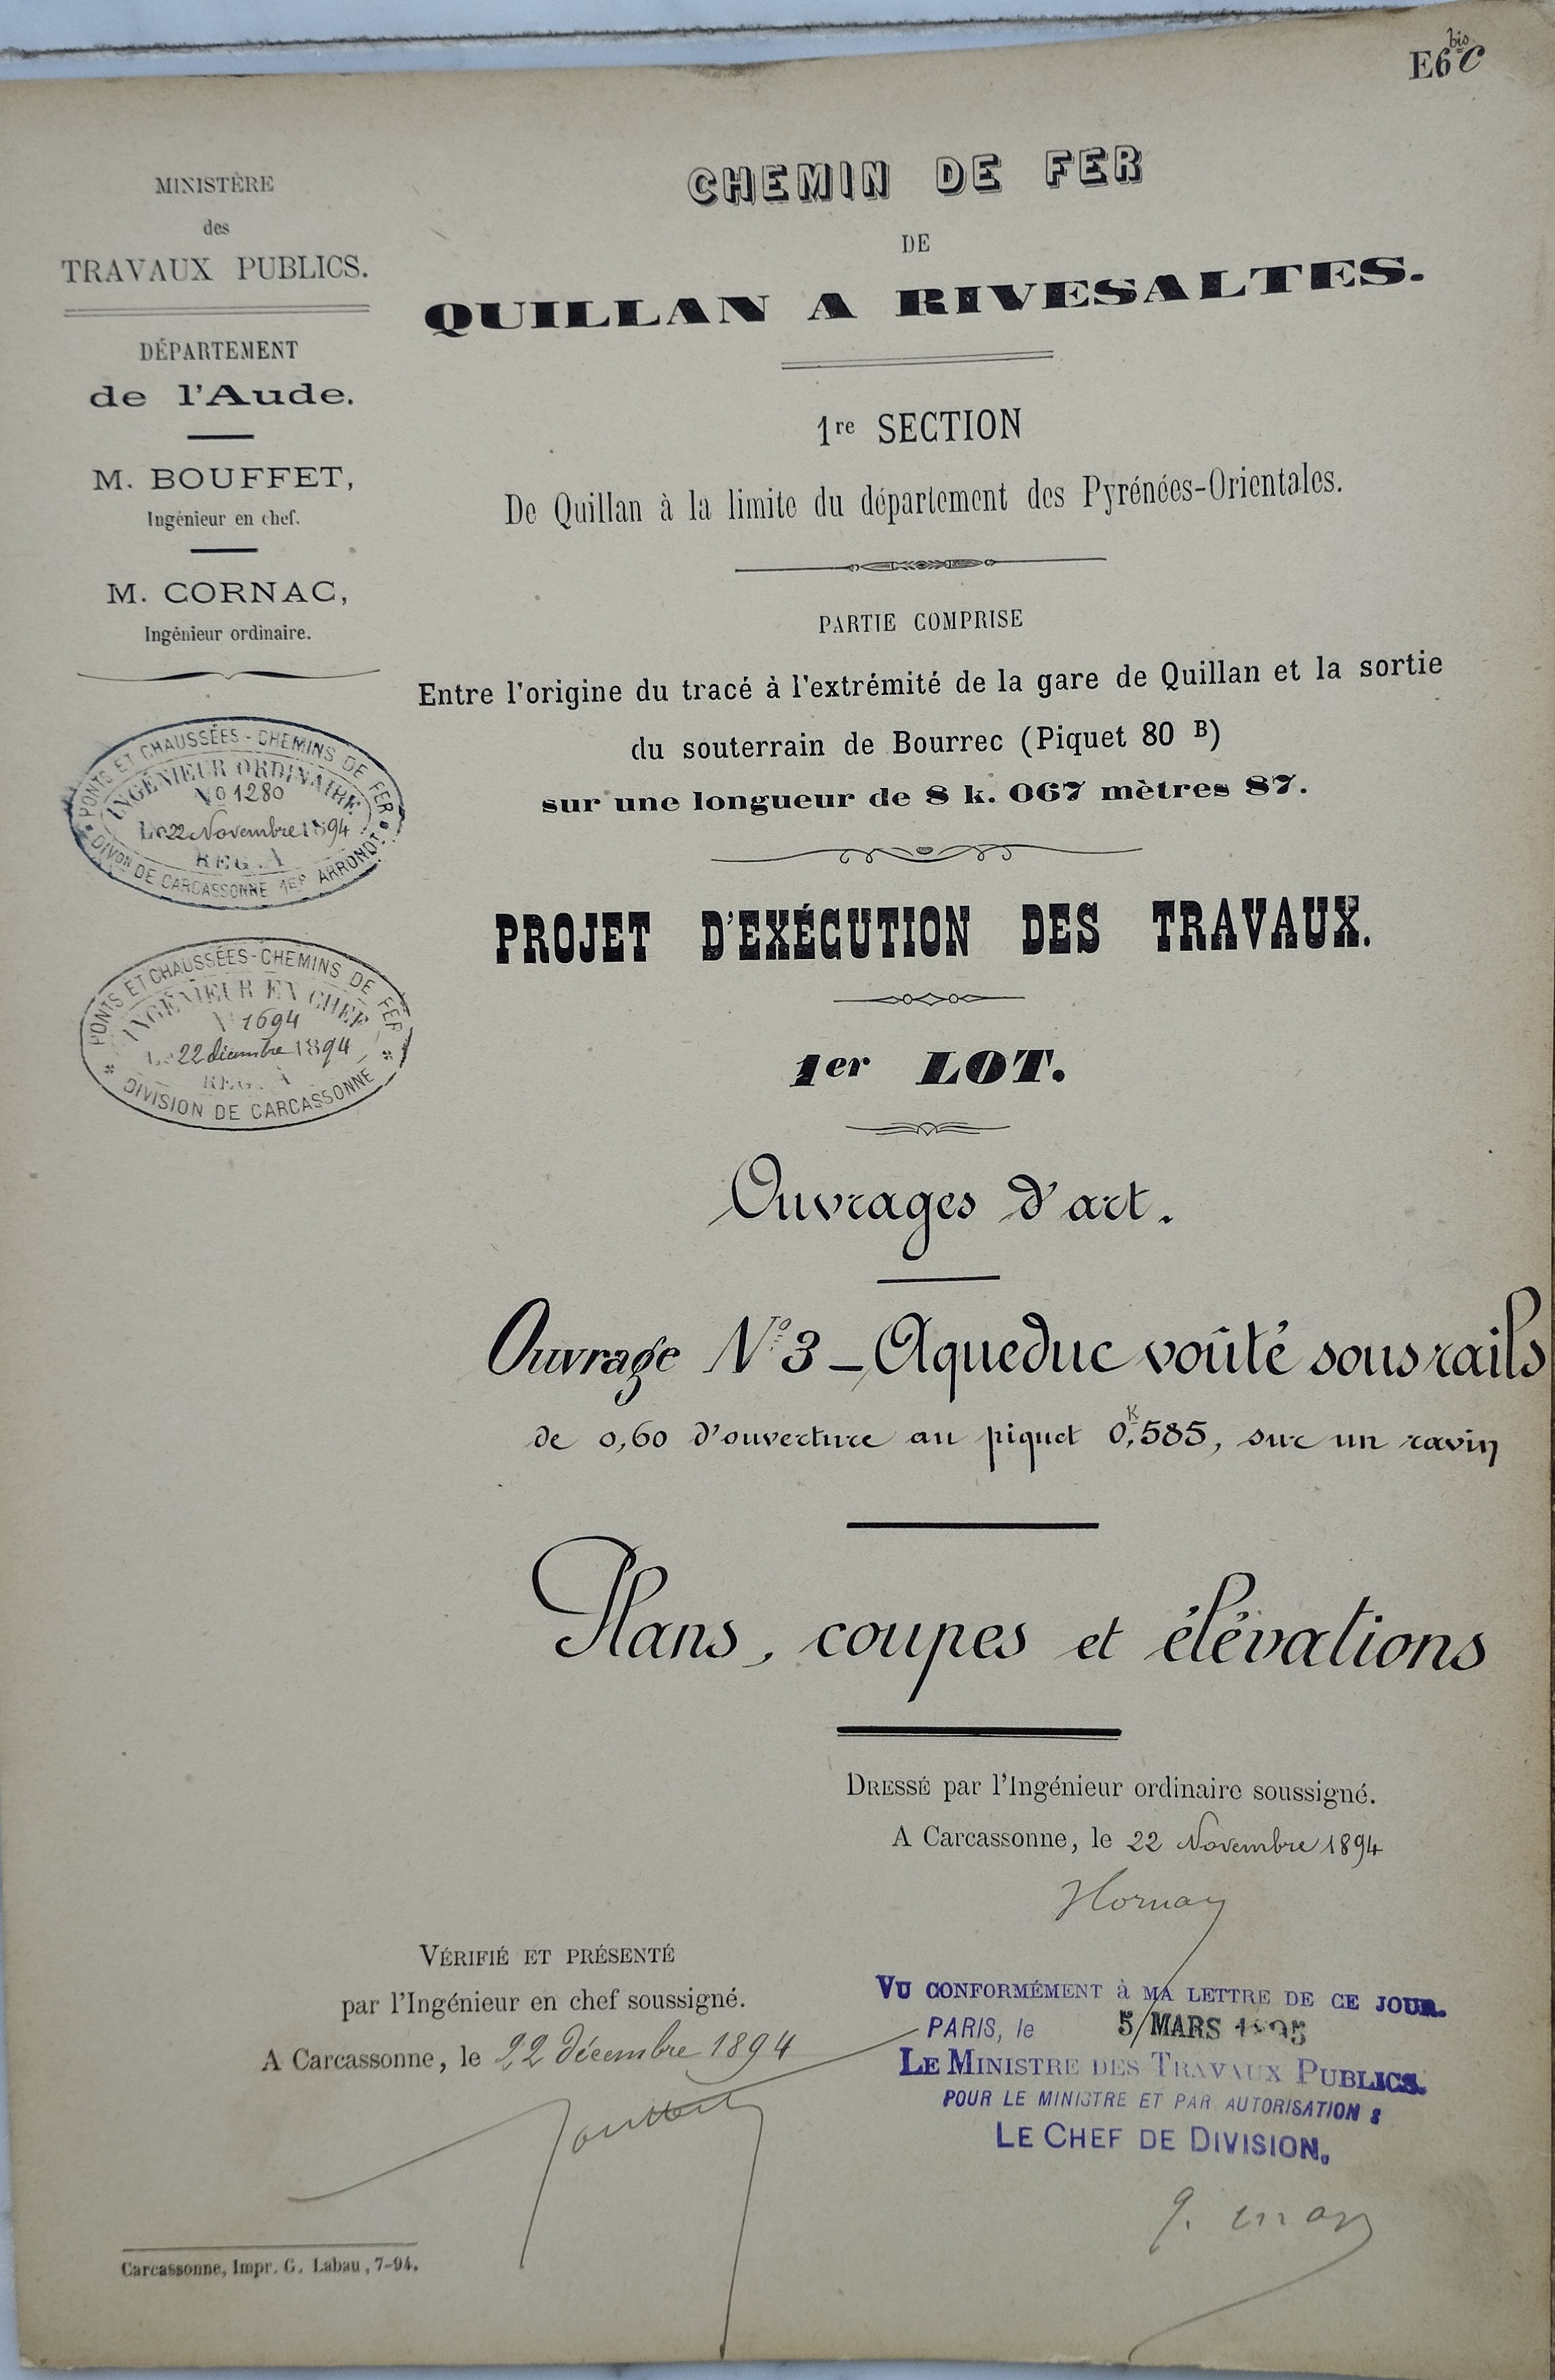 E6 bis C
MINISTÈRE
des
TRAVAUX PUBLICS.
DÉPARTEMENT
de l'Aude.
M. BOUFFET,
Ingénieur en chef.
M. CORNAC,
Ingénieur ordinaire.
PONTS ET CHAUSSÉES - CHEMINS DE FER
INGÉNIEUR ORDINAIRE
No 1280
Le 22 Novembre 1894
REG. A
DIVon DE CARCASSONNE 1ER ARRONDT
PONTS ET CHAUSSÉES - CHEMINS DE FER
INGÉNIEUR EN CHEF
N° 1694
Le 22 décembre 1894
REG. A
DIVISION DE CARCASSONNE
CHEMIN DE FER
DE
QUILLAN A RIVESALTES.
1re SECTION
De Quillan à la limite du département des Pyrénées-Orientales.
PARTIE COMPRISE
Entre l'origine du tracé à l'extrémité de la gare de Quillan et la sortie
du souterrain de Bourrec (Piquet 80 B)
sur une longueur de 8 k. 067 mètres 87.
PROJET D'EXÉCUTION DES TRAVAUX.
1er LOT.
Ouvrages d'art.
Ouvrage N° 3 – Aqueduc voûté sous rails
de 0,60 d'ouverture au piquet 0K,585, sur un ravin
Plans, coupes et élévations
DRESSÉ par l'Ingénieur ordinaire soussigné.
A Carcassonne, le 22 Novembre 1894
VÉRIFIÉ ET PRÉSENTÉ
par l'Ingénieur en chef soussigné.
A Carcassonne, le 22 décembre 1894
VU CONFORMÉMENT à MA LETTRE DE CE JOUR.
PARIS, le 5 MARS 1895
LE MINISTRE DES TRAVAUX PUBLICS.
POUR LE MINISTRE ET PAR AUTORISATION :
LE CHEF DE DIVISION.
Carcassonne, Impr. G. Labau, 7-94.